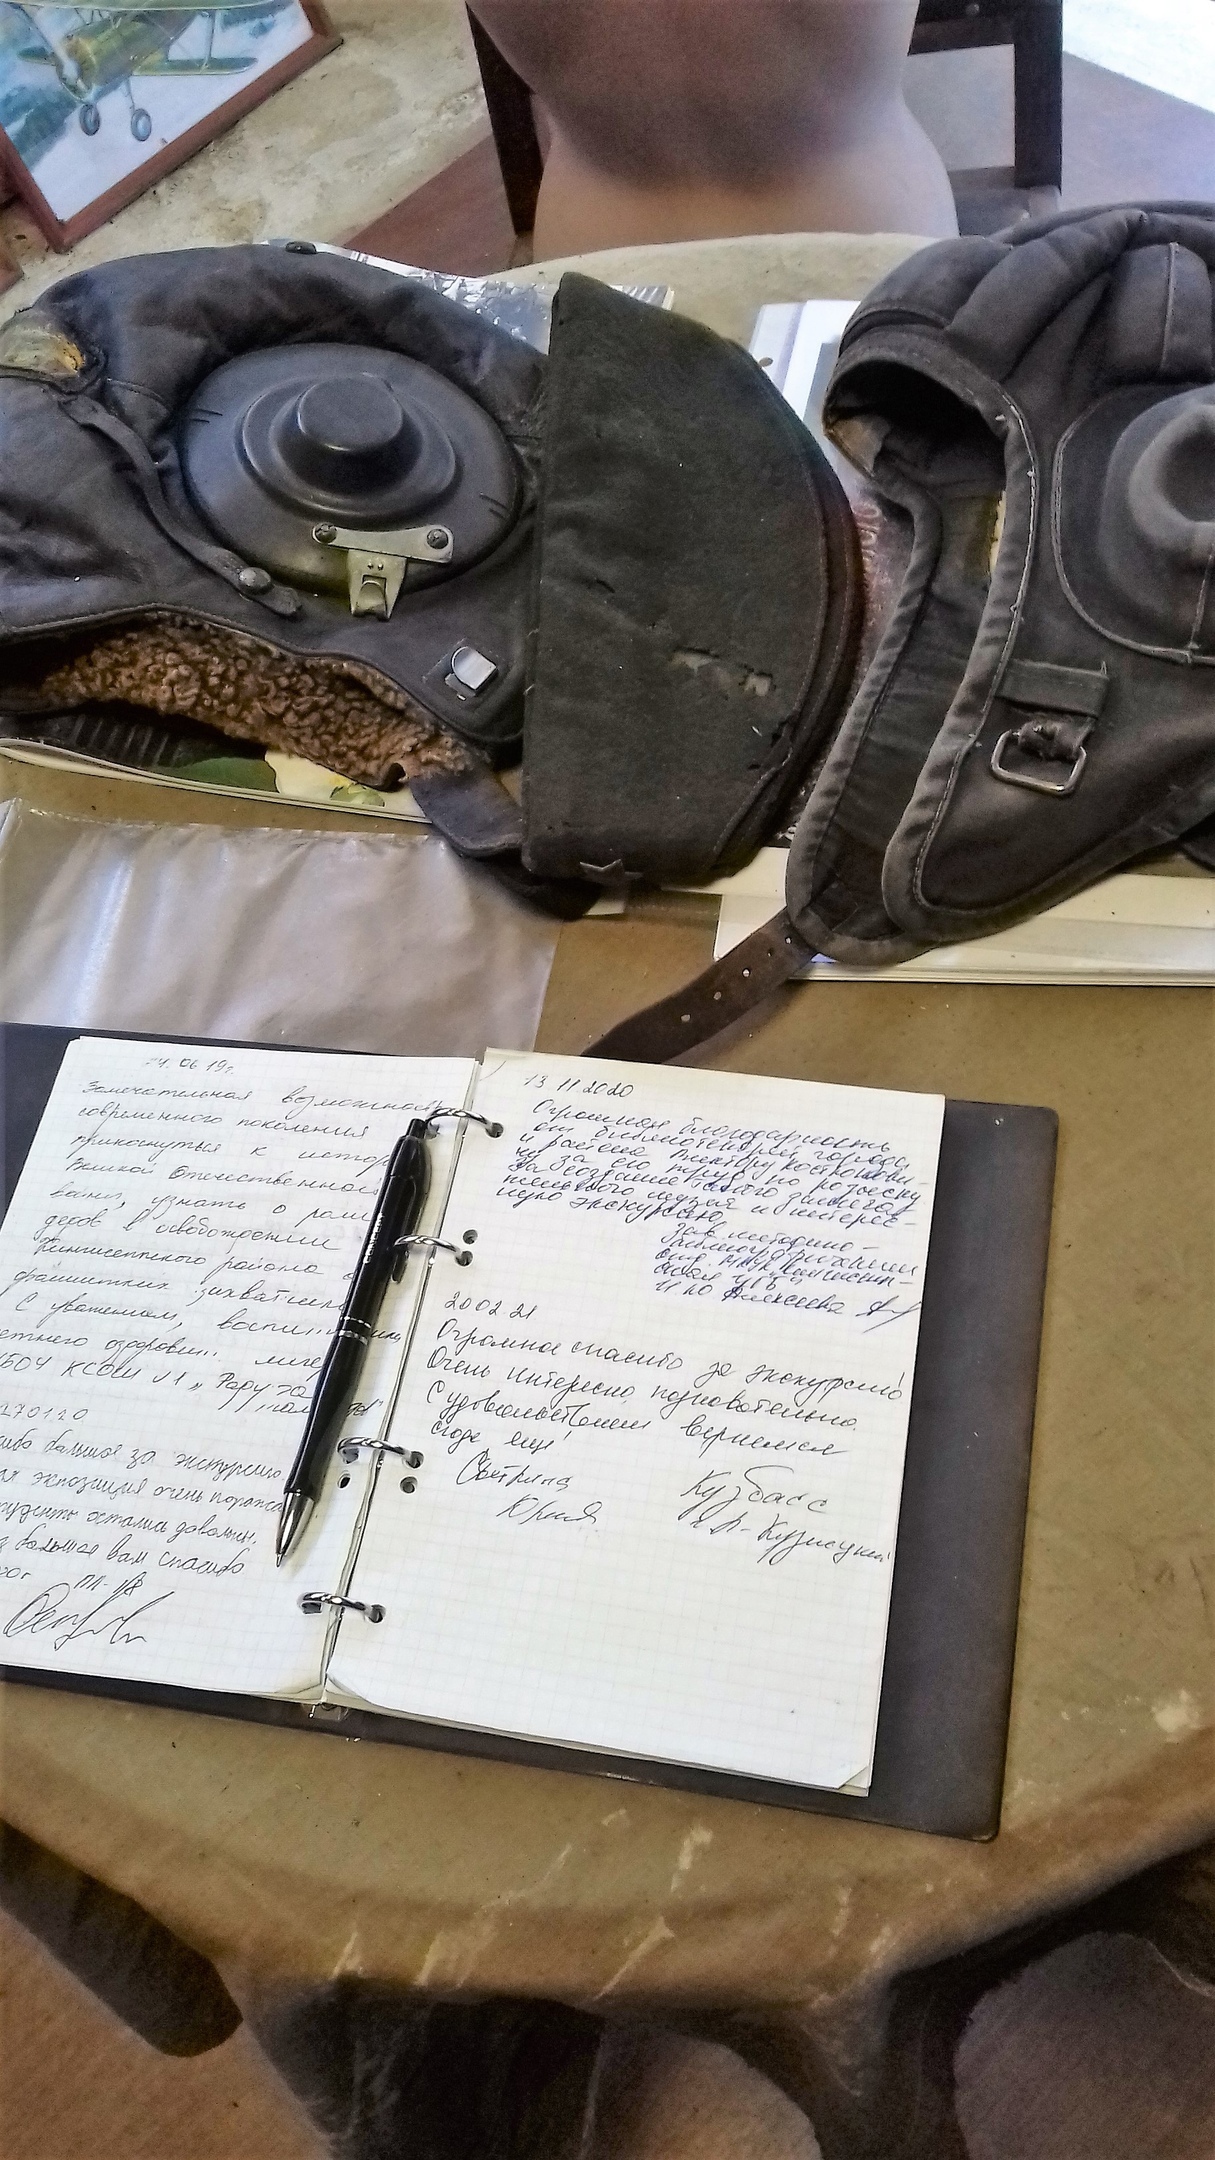 24.06.19г.
Замечательная возможность
современного поколения
прикоснуться к истор
Великой Отечественной
войны, узнать о роли
деров в освобождении
Кингисеппского района
фашистских захватчик
С уважением, воспи
летнего оздоровит. лаге
КСОШ №1 „Радуга
270120
большое за экскурсию.
экспозиция очень
студенты остались довольны.
большое вам спасибо
13 11 2020
Огромная благодарность
от библиотекарей города
и района Виктору Костюкови-
чу за его труд по розыску
За создание такого замеча-
тельного музея и интерес-
ную экскурсию.
Зав. методико-
библиографическим
отд. МКУК "Кингисепп-
ская ЦГБ"
И Ю Алексеева
20 02 21
Огромное спасибо за экскурсию
Очень интересно, познавательно.
С удовольствием вернемся
сюда ещё!
Светлана Кузбасс
Юлия г. Л-Кузнецкий